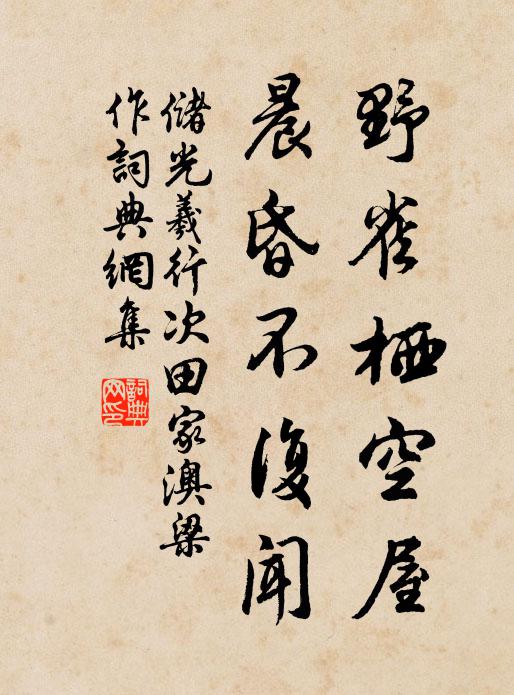 野雀栖空屋
晨昏不復聞
儲光羲行次田家澳梁
作詞典網集
詞典
网印